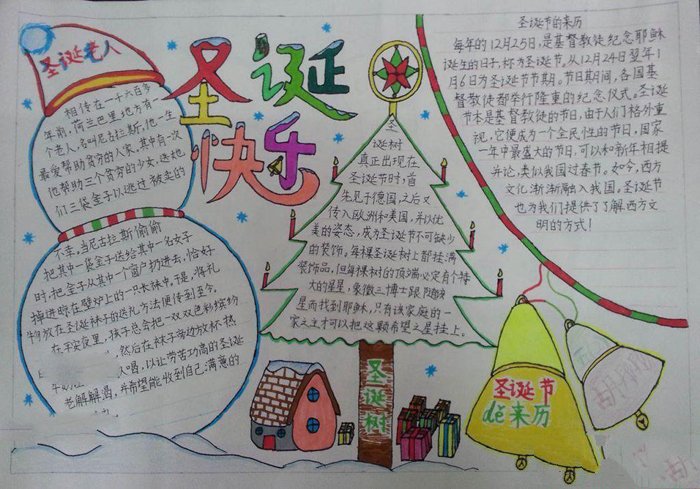 圣诞老人
相传在一千六百多
年前,荷兰巴里地方有一
个老人,名叫尼古拉斯,他一生
最爱帮助贫穷的人家,其中有一次
他帮助三个贫穷的少女,送她
们三袋金子以逃过被卖的
不幸,当尼古拉斯偷偷
把其中一袋金子送给其中一名女子
时,把金子从其中一个窗户扔进去,恰好
掉进晾在壁炉上的一只长袜中。于是,将礼
物放在圣诞袜子的送礼方法便传到至今。
在平安夜里,孩子总会把一双双色彩缤纷
然后在袜子旁边放杯热
喝,以让劳苦功高的圣诞
老解解渴,并希望能收到自己满意的
圣诞
快乐
圣
诞树
真正出现在
圣诞节时,首
先见于德国,之后又
传入欧洲和美国,并以优
美的姿态,成为圣诞节不可缺少
的装饰。每棵圣诞树上都挂满
装饰品,但每棵树的顶端必定有个特
大的星星,象徵三博士跟随该
星而找到耶稣,只有该家庭的一
家之主才可以把这颗希望之星挂上。
圣诞树
圣诞节的来历
每年的12月25日,是基督教徒纪念耶稣
诞生的日子,称为圣诞节。从12月24日翌年1
月6日为圣诞节节期。节日期间,各国基
督教徒都举行隆重的纪念仪式。圣诞
节本是基督教徒的节日,由于人们格外重
视,它便成为一个全民性的节日,国家
一年中最盛大的节日,可以和新年相提
并论,类似我国过春节。如今,西方
文化渐渐融入我国,圣诞节
也为我们提供了了解西方文
明的方式!
圣诞节
dè来历